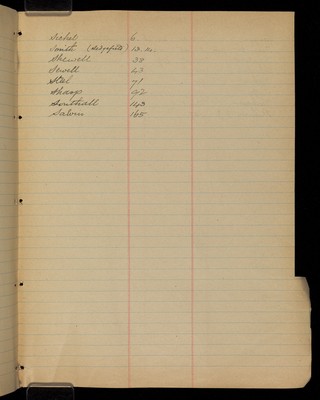 Sichel 6
Smith (Sedgefield) 13.
Shewell 38
Sewell 43
Stel 71
Sharp 92
Southall 143
Salvin 165